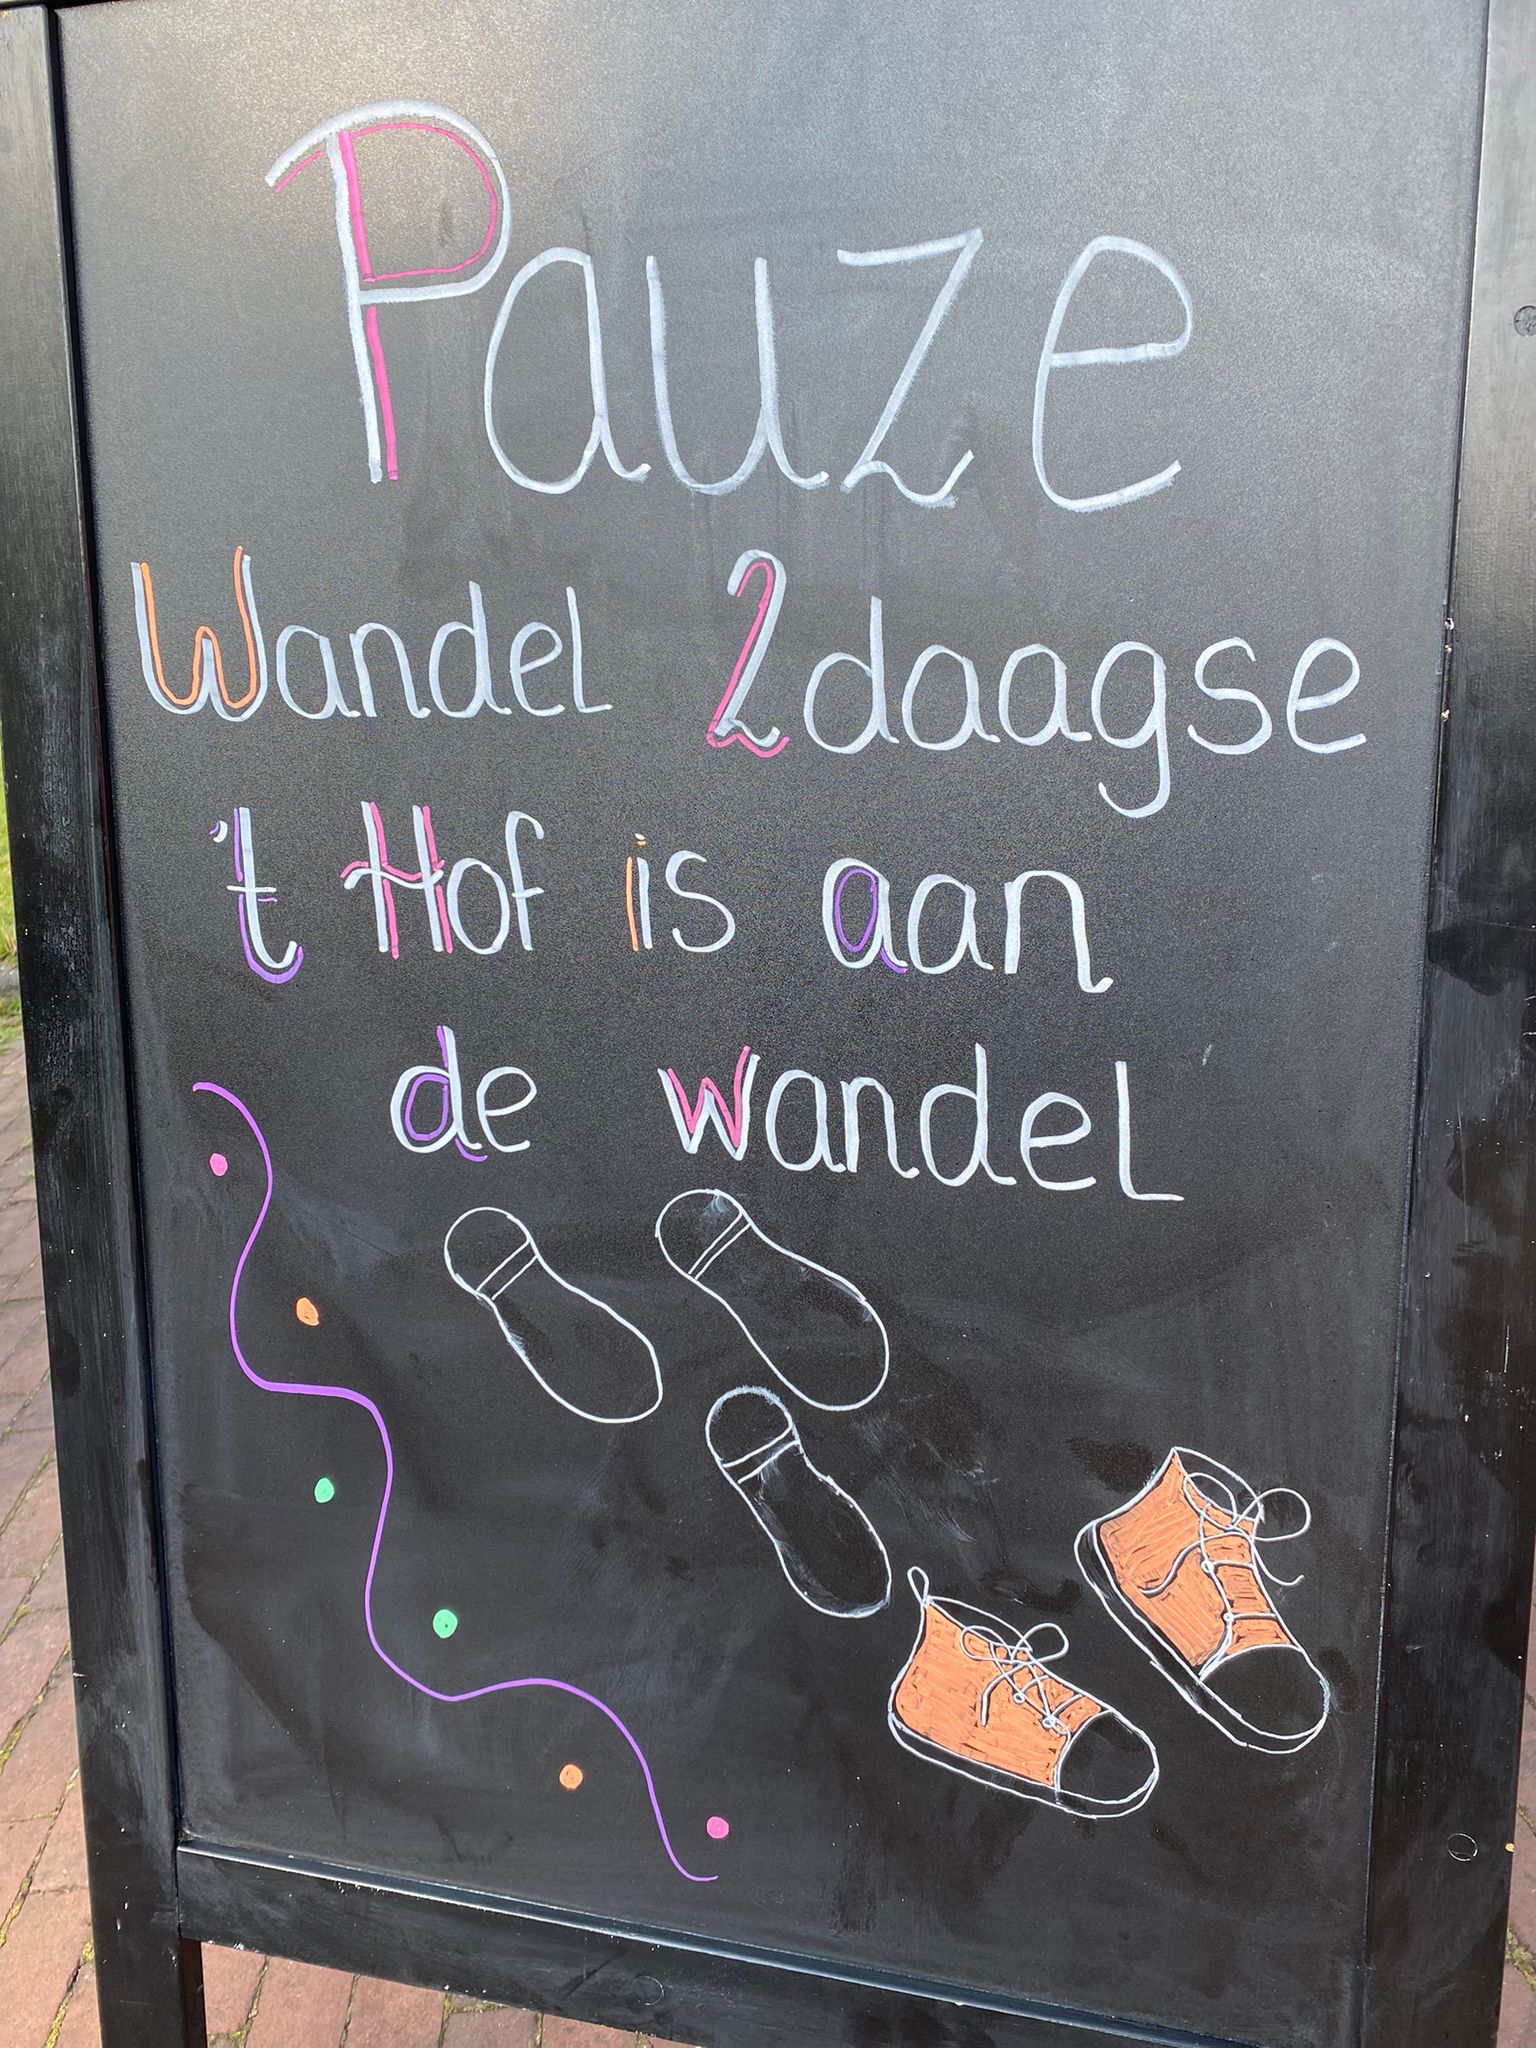 Pauze
Wandel 2daagse
't Hof is aan
de wandel